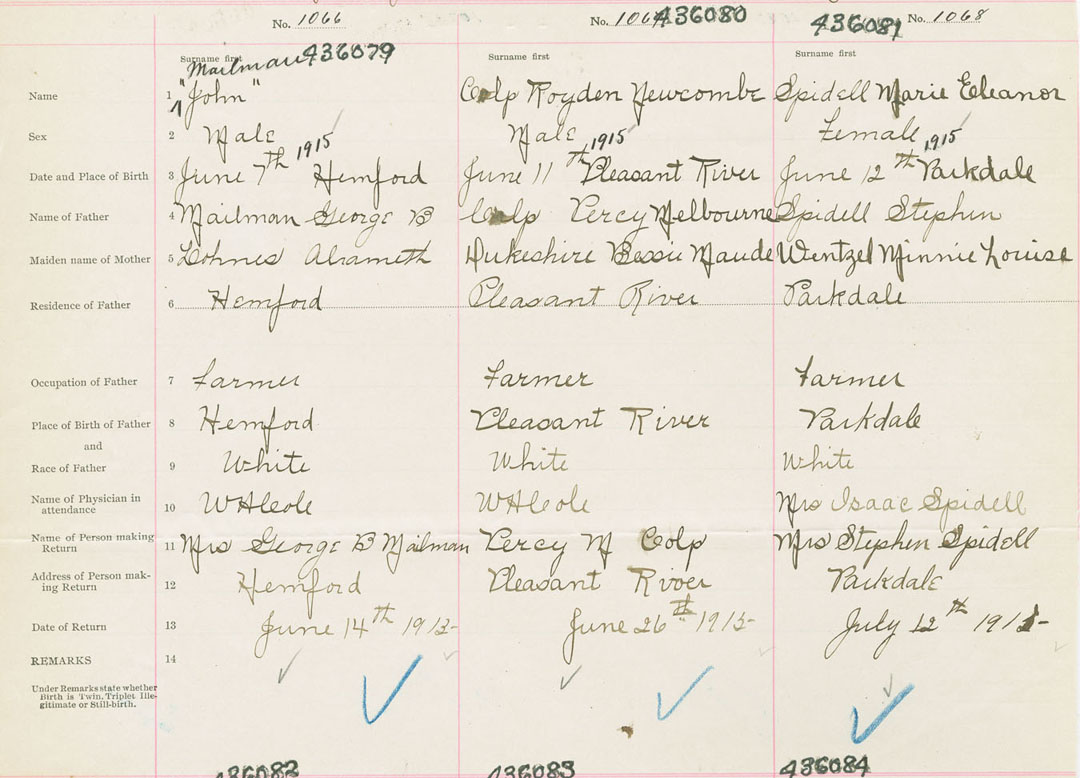 No. 1066 No. 1067 436080 436081 No. 1068
Surname first 436079 Surname first Surname first
Mailman
Name 1 "John" Colp Royden Newcombe Spidell Marie Eleanor
Sex 2 Male Male Female
1915 1915 1915
Date and Place of Birth 3 June 7th Hemford June 11th Pleasant River June 12th Parkdale
Name of Father 4 Mailman George B Colp Percy Melbourne Spidell Stephen
Maiden name of Mother 5 Lohnes Dukeshire Bessie Maude Wentzel Minnie Louise
Residence of Father 6 Hemford Pleasant River Parkdale
Occupation of Father 7 Farmer Farmer Farmer
Place of Birth of Father 8 Hemford Pleasant River Parkdale
and
Race of Father 9 White White White
Name of Physician in
attendance 10 WHCole WHCole Mrs Isaac Spidell
Name of Person making
Return 11 Mrs George B Mailman Percy M Colp Mrs Stephen Spidell
Address of Person mak-
ing Return 12 Hemford Pleasant River Parkdale
Date of Return 13 June 14th 1915 June 26th 1915 July 12th 1915
REMARKS 14
Under Remarks state whether
Birth is Twin, Triplet Ille-
gitimate or Still-birth.
436082 436083 436084